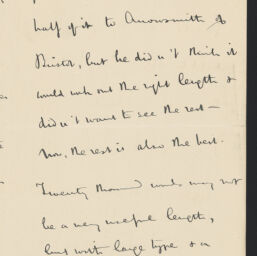 half of it to Arrowsmith of
Bristol, but he didn't think it
would work out the right length &
didn't want to see the rest —
Now, the rest is also the best.
Twenty thousand words may not
be a very useful length,
but with large type & a